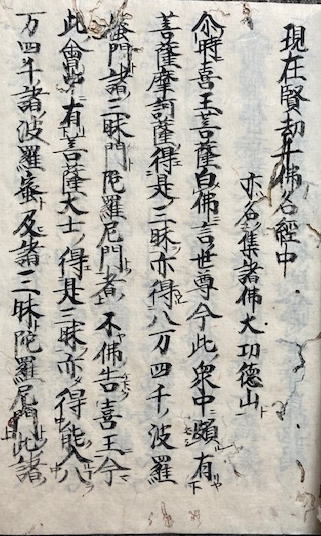 現在賢劫千佛名經中
亦名集諸佛大功德山
尒時喜王菩薩白佛言世尊今此衆中頗有
菩薩摩訶薩得是三昧亦得八万四千波羅
蜜門諸三昧門陀羅尼門者不佛告喜王今
此會中有菩薩大士得是三昧亦得能入八
万四千諸波羅蜜及諸三昧陀羅尼門此諸